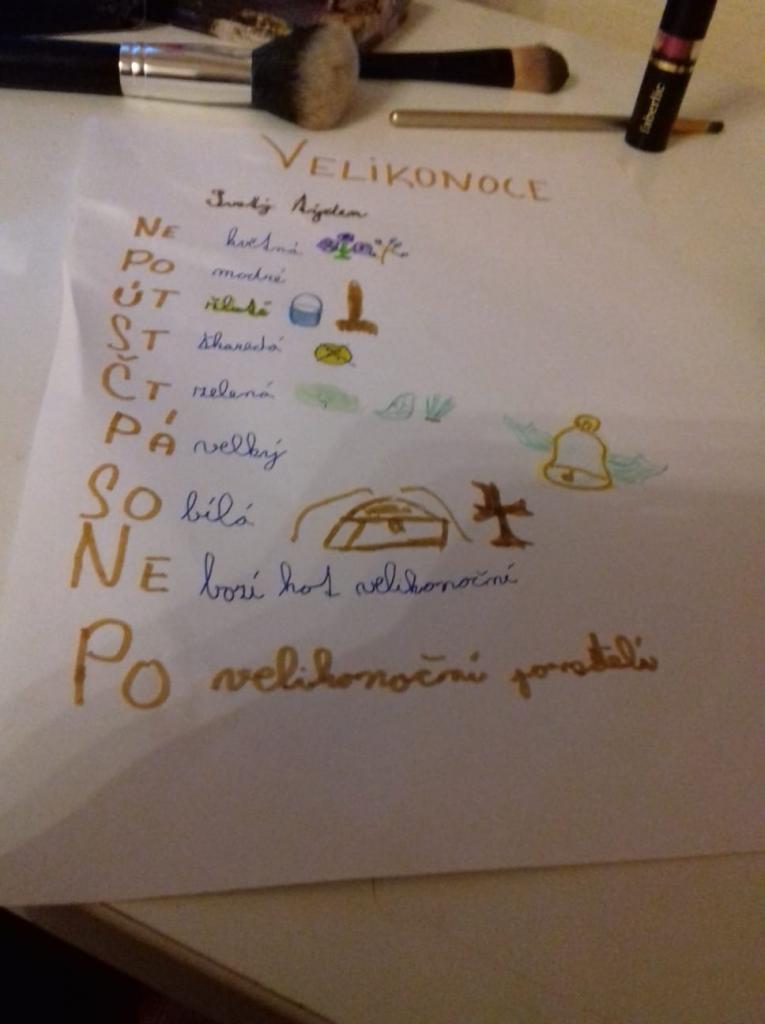 faberlic
VELIKONOCE
Svatý týden
NE květná
PO modré
ÚT žluté
ST škaredá
ČT zelená
PÁ velký
SO bílá
NE bozí hod velikonoční
PO velikonoční